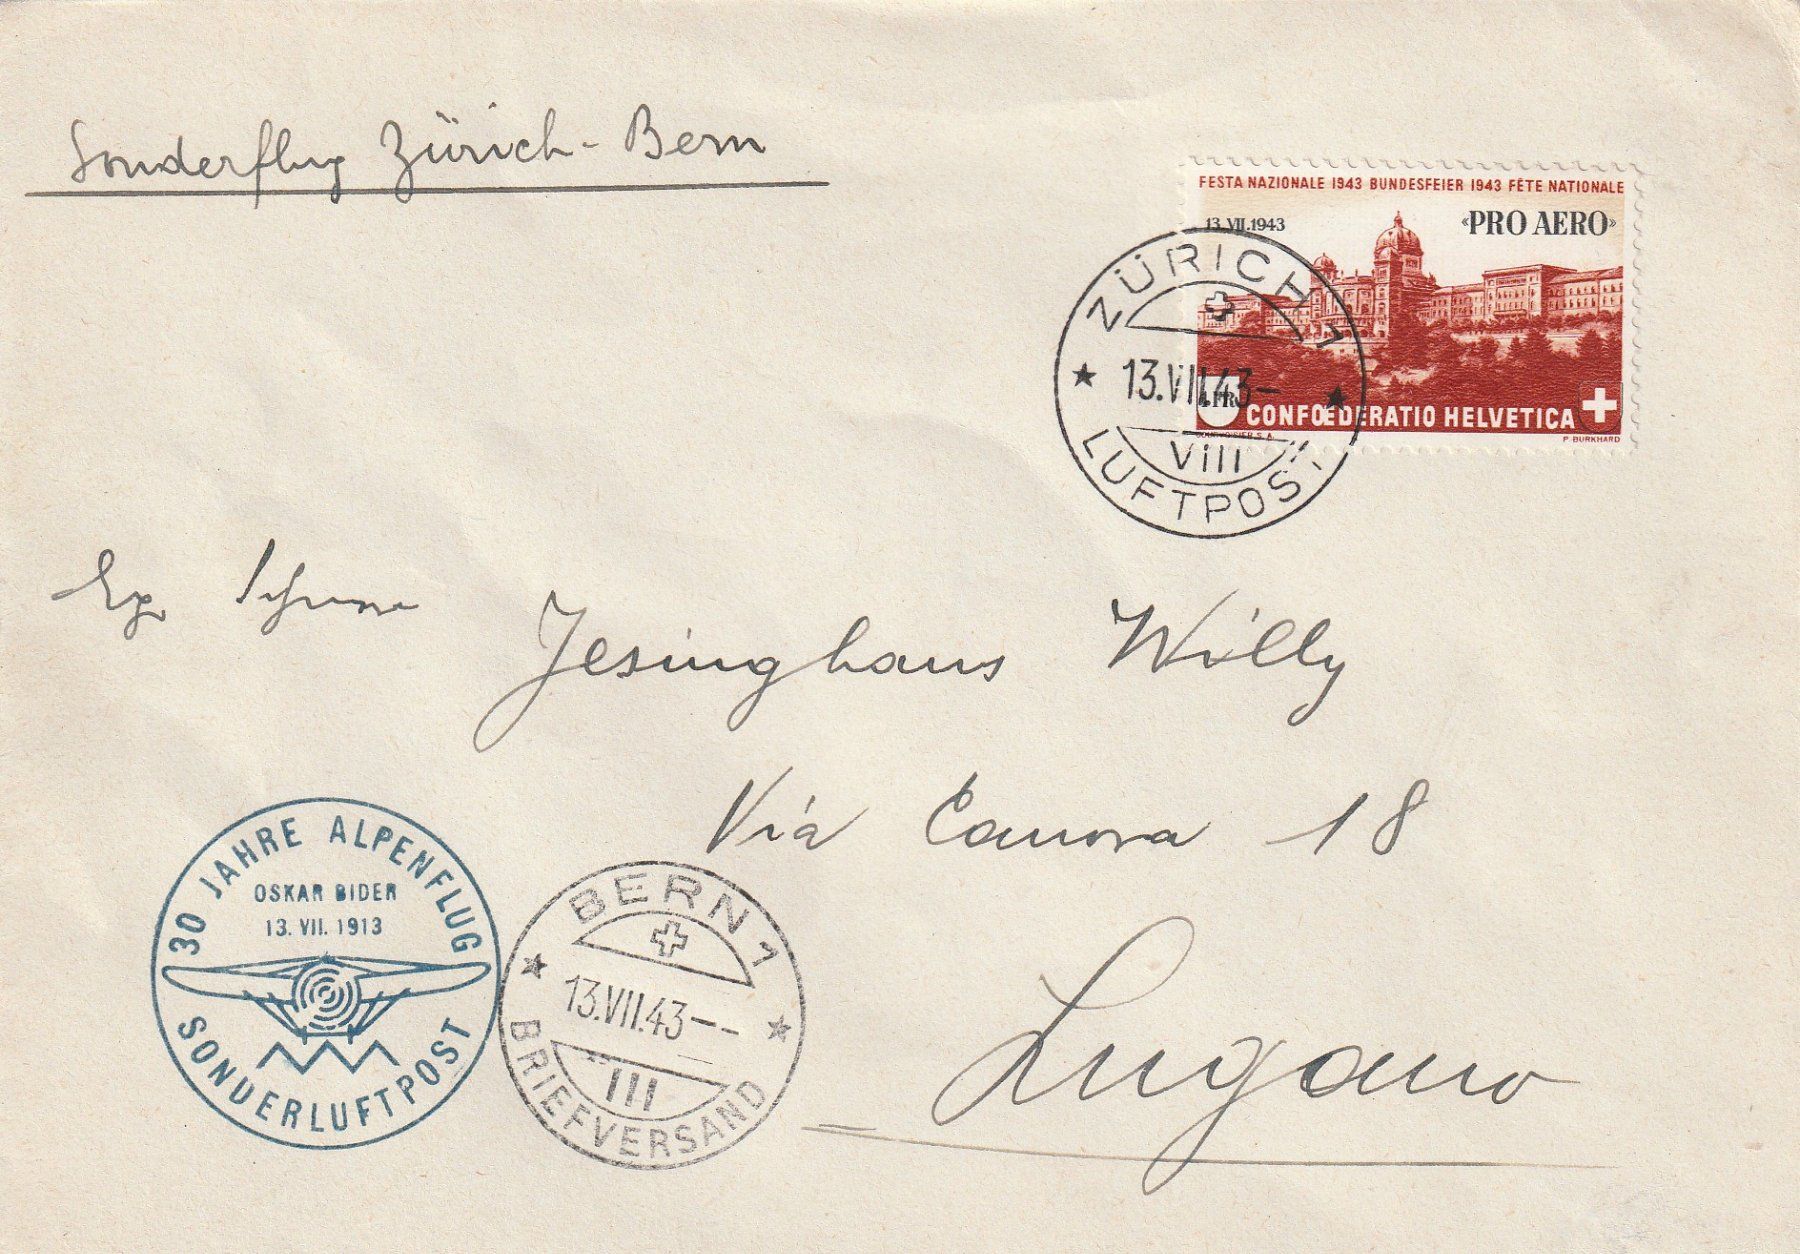 Sonderflug Zürich-Bern
FESTA NAZIONALE 1943 BUNDESFEIER 1943 FÊTE NATIONALE
13.VII.1943 «PRO AERO»
1.FR.
CONFŒDERATIO HELVETICA
COURVOISIER S.A. P. BURKHARD
ZÜRICH 1
13.VII.43-
VIII
LUFTPOST
Jesinghaus Willy
Via Canova 18
Lugano
30 JAHRE ALPENFLUG
OSKAR BIDER
13. VII. 1913
SONDERLUFTPOST
BERN 1
13.VII.43--
III
BRIEFVERSAND